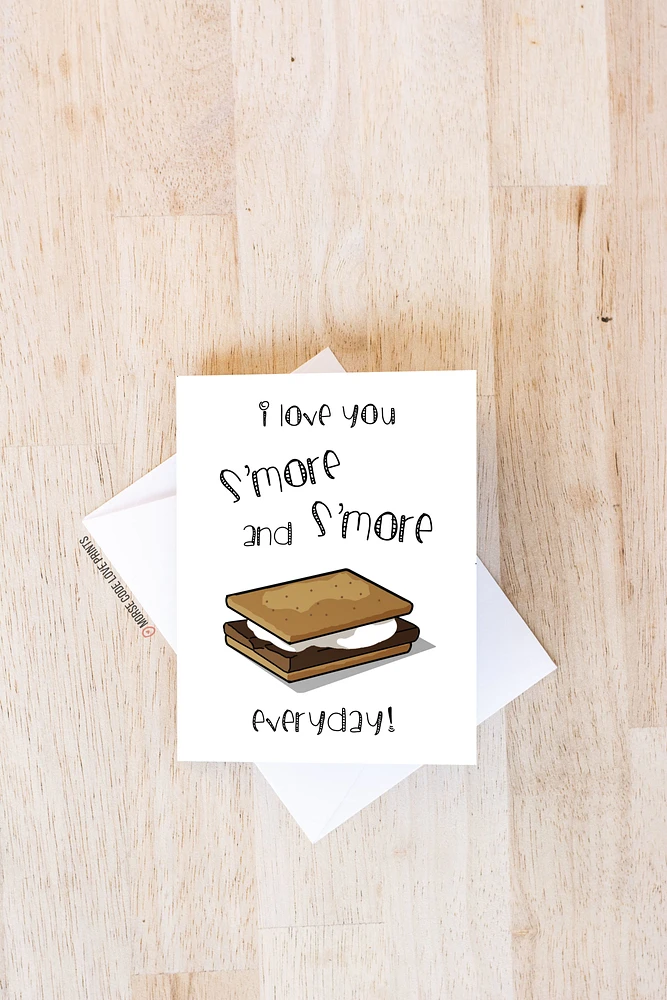 i love you
S'more
and S'more
everyday!
MORSE CODE LOVE PRINTS